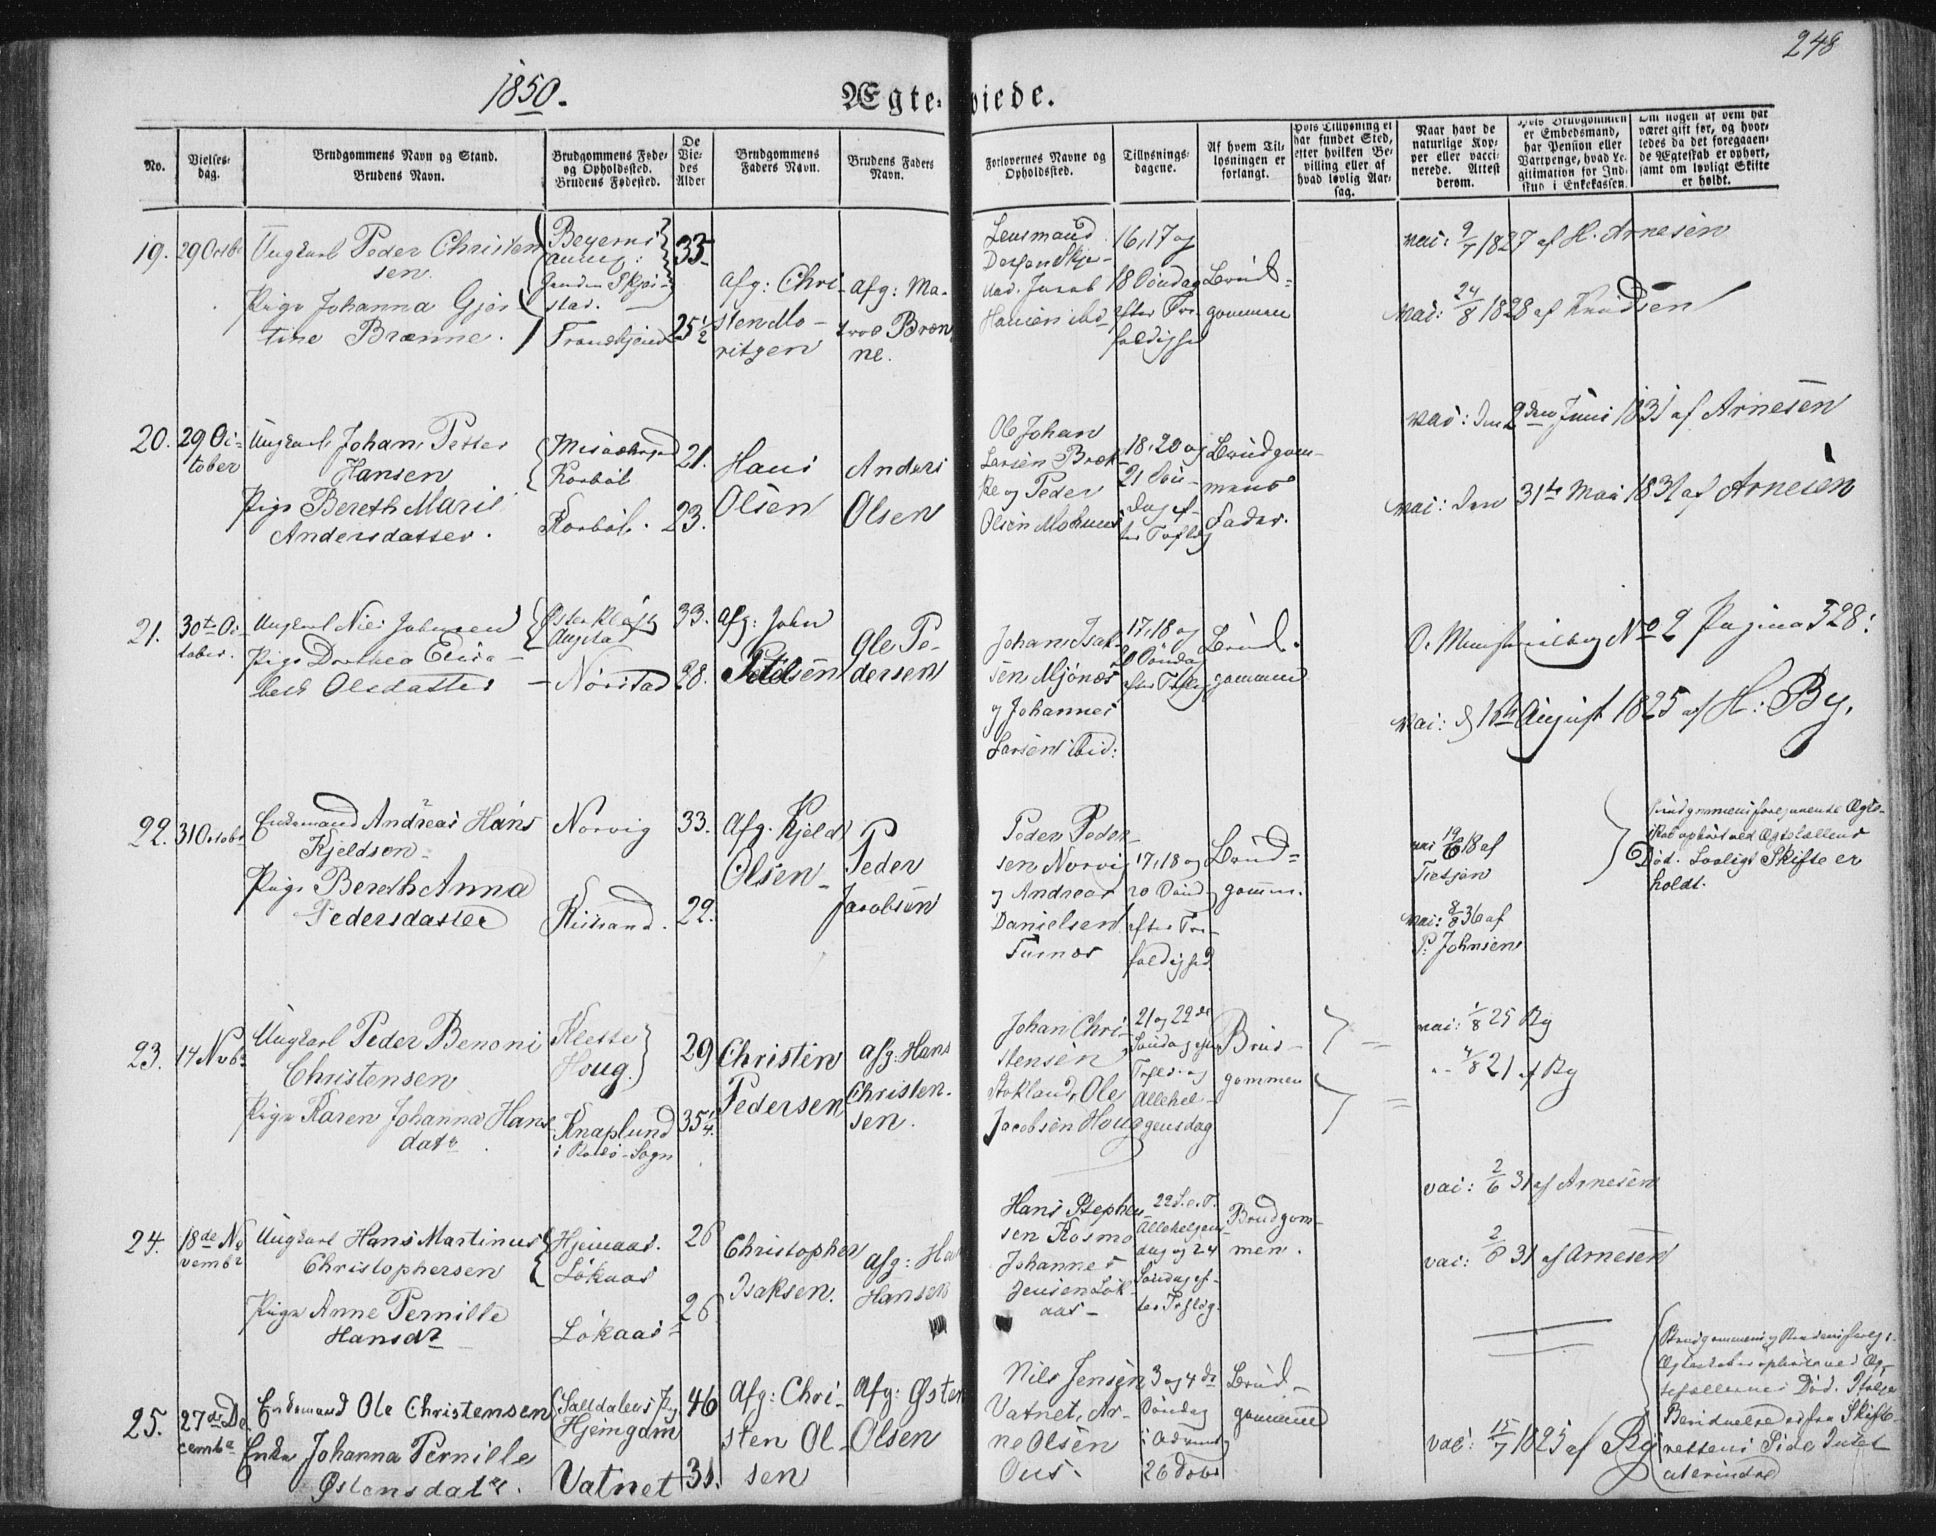 248
1850.
Ægte-viede.
No.
Vielses-
dag.
Brudgommens Navn og Stand.
Brudens Navn.
Brudgommens Føde-
og Opholdsted.
Brudens Fødested.
De
Vie-
des
Alder
Brudgommens
Faders Navn.
Brudens Faders
Navn.
Forlovernes Navne og
Opholdsted.
Tillysnings-
dagene.
Af hvem Til-
lysningen er
forlangt.
Hvis Tillysning ei
har fundet Sted,
efter hvilken Be-
villing eller af
hvad lovlig Aar-
sag.
Naar havt de
naturlige Kop-
per eller vacci-
nerede. Attest
derom.
Hvis Brudgommen
er Embedsmand,
har Pension eller
Vartpenge, hvad Le-
gitimation for Ind-
skud i Enkekassen.
Om nogen af dem har
været gift før, og hvor-
ledes da det foregaaen-
de Ægteskab er ophørt,
samt om lovligt Skifte
er holdt.
19.
29 Octobr
Ungkarl Peder Christen
sen.
Pige Johanna Gjør
tine Brænne.
stad.
33
25 1/2
Afg: Chri-
sten Mo-
ritzen
Afg: Ma-
Bræn
ne.
Lensmand
Jacob
Hansen ibd
16, 17 og
18 Søndag
efter Tre
foldighed
Brud-
gommen
vac: 9/7 1827 af H. Arnesen
vac: 24/8 1828 af Knudsen
20.
29 Oc-
tober
Ungkarl Johan Petter
Hansen
Pige Bereth Marie
Andersdatter.
Korbøl
Korbøl.
21.
23.
Hans
Olsen
Anders
Olsen
Ole Johan
Larsen Bræk-
ke og Peder
Olsen
18, 20 og
21 Søn-
dag ef-
ter Trefldg
Brudgom-
mens
Fader.
vac: den 2den Juni 1831 af Arnesen
vac: den 31te Mai 1831 af Arnesen
21.
30te Oc-
tober.
Ungkarl Nils Johnsen
Pige Dorthea Elisa-
beth Olsdatter
Øster Kløft
Nørstad
33.
28.
Afg: John
Ole Pe-
dersen
Johan Isak-
sen Mjønæs
og Johannes
Larsen ibid:
17, 18 og
20 Søndag
efter Trefldg
Brud-
gommen
No 2 Pagina 328:
vac: d August 1825 af H: By.
22.
31 Octobr
Enkemand Andreas Hans
Kjeldsen
Pige Bereth Anna
Pedersdatter
Norvig
33.
22.
Afg. Kjeld
Olsen
Peder
Jacobsen
Peder Peder-
sen Norvig
og Andreas
Danielsen
17, 18 og
20 Sønd
efter Tre-
foldighed
Brud-
gomm.
vac 19/6 18 af
vac: 8/8 36 af
P: Johnsen
Brudgommens foregaaende Ægte-
skab ophørt ved Ægtefællens
Død. Lovligt Skifte er
holdt.
23.
14 Novbr
Ungkarl Peder Benoni
Christensen
Pige Karen Johanna Hans
datr
Kløfte
Houg.
Knaplund
i Sogn
29
35 1/4.
Christen
Pedersen
Afg: Hans
Christen-
sen.
Johan Chri-
stensen
Stokland, Ole
Jacobsen Houg
21 og 22de
Søndag efter
Trefld. og
Allehel-
gensdag
Brud-
gommen
vac: 1/8 25 By
4/8 21 af By
24.
18de No
vembr
Ungkarl Hans Martinus
Christophersen
Pige Anne Pernille
Hansdr
Hjemaas.
Løkaas
Løkaas
26
26
Christopher
Isaksen.
Afg: Ha
Hansen
Hans Stephen-
sen Kosmo
Johannes
Jensen Løk-
aas
22 S. e. T.
Allehelgens
dag og 24
Søndag ef-
ter Trefldg.
Brudgom-
men.
vac: 2/6 31 af Arnesen
vac: 2/6 31 af Arnesen
25.
27de De
cembr
Enkemand Ole Christensen
Enke Johanna Pernille
Østensdatr.
Saltdalens Pg
Hjemgam
Vatnet
46
31.
Afg: Chri-
sten Ol-
sen
Afg: Østen
Olsen
Nils Jensen
Vatnet, Ar-
ne Olsen
Ous.
3 og 4de
Søndag
i Advent
26 Decbr
Brud-
gommen
vac: 15/7 1825 af By
Brudgommens og Brudens foreg.
Ægteskaber ophørt ved Æg-
tefællernes Død. Ifølge
Bevidnelse fra Skifte-
rettens Side Intet